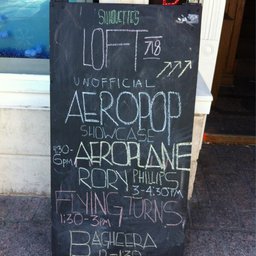 SILHOUETTES
LOFT 7/8
UNOFFICIAL
AEROPOP
SHOWCASE
AEROPLANE
6pm
RORY PHILLIPS
3-4:30PM
FLYING TURNS
1:30-3PM
BAGHEERA